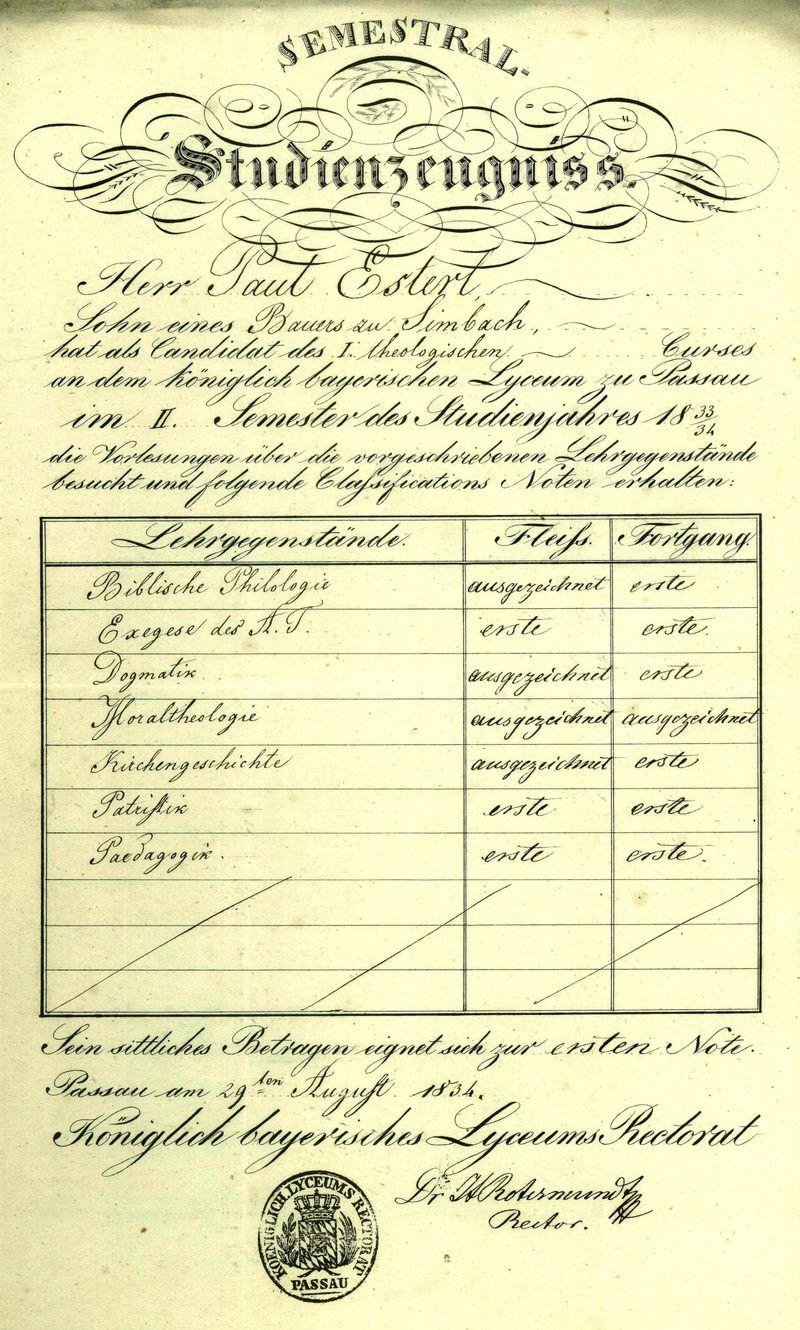 SEMESTRAL-
Studienzeugniss.
Herr Paul Esterl,
Sohn eines Bauers zu Simbach,
hat als Candidat des I. theologischen Curses
an dem königlich bayerischen Lyceum zu Passau
im II. Semester des Studienjahres 18 33/34
die Vorlesungen über die vorgeschriebenen Lehrgegenstände
besucht und folgende Classifications Noten erhalten:
Lehrgegenstände. Fleiss. Fortgang.
Biblische Philologie ausgezeichnet erste
Exegese des A. T. erste erste.
Dogmatik ausgezeichnet erste
Moraltheologie ausgezeichnet ausgezeichnet
Kirchengeschichte ausgezeichnet erste
Patristik erste erste
Paedagogik. erste erste.
Sein sittliches Betragen eignet sich zur ersten Note.
Passau am 29ten August 1834.
Königlich bayerisches Lyceums Rectorat
Dr. Rotermundt
Rector.
KOENIGLICH. LYCEUMS RECTORAT
PASSAU